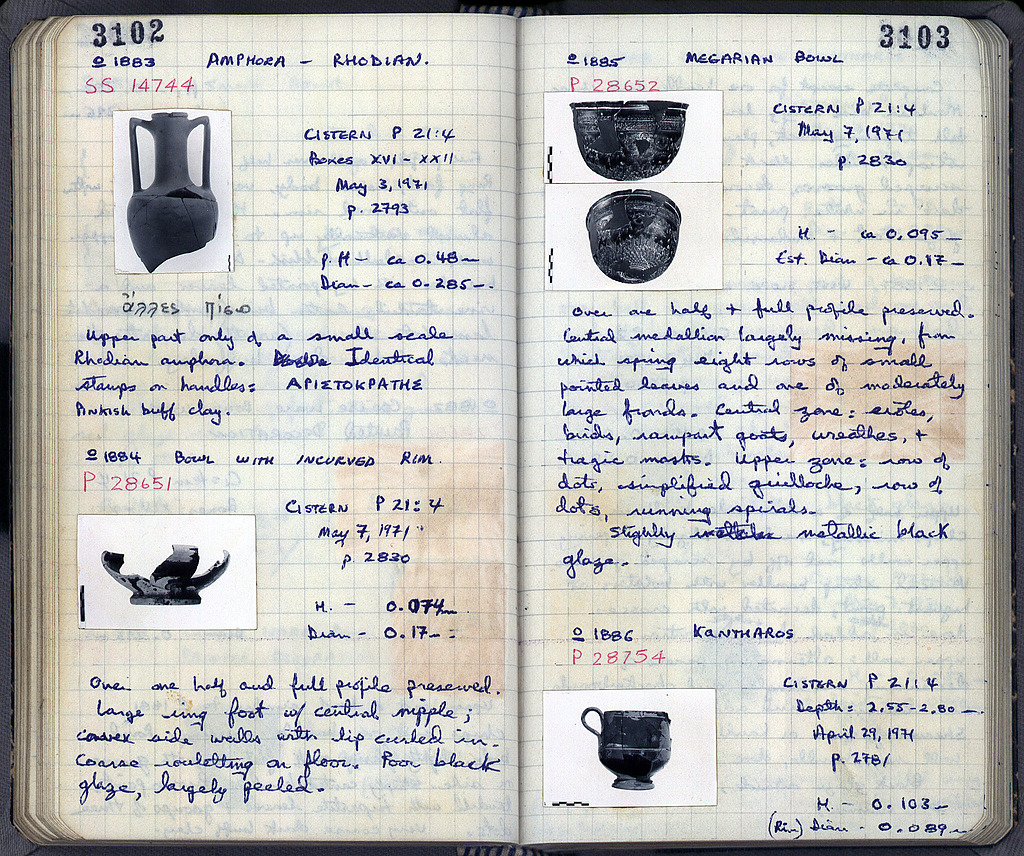 3102
o 1883 AMPHORA - RHODIAN.
SS 14744
CISTERN P 21:4
Boxes XVI - XXII
May 3, 1971
p. 2793
P.H - ca 0.48 m
Diam - ca 0.285 m.
ἄλλες πίσω
Upper part only of a small scale
Rhodian amphora. Identical
stamps on handles: ΑΡΙΣΤΟΚΡΑΤΗΣ
Pinkish buff clay.
o 1884 BOWL WITH INCURVED RIM.
P 28651
CISTERN P 21:4
May 7, 1971
p. 2830
H. - 0.074 m.
Diam - 0.17 m.
Over one half and full profile preserved.
Large ring foot w/ central nipple;
convex side walls with lip curled in.
Coarse rouletting on floor. Poor black
glaze, largely peeled.
3103
o 1885 MEGARIAN BOWL
P 28652
CISTERN P 21:4
May 7, 1971
p. 2830
H. - ca 0.095 m
Est. Diam - ca 0.17 m
Over one half + full profile preserved.
Central medallion largely missing, from
which spring eight rows of small
pointed leaves and one of moderately
large fronds. Central zone: erotes,
birds, rampart goats, wreathes, +
tragic masks. Upper zone: row of
dots, simplified guilloche, row of
dots, running spirals.
Slightly metallic black
glaze.
o 1886 KANTHAROS
P 28754
CISTERN P 21:4
Depth: 2.55-2.80 m.
April 29, 1971
p. 2781
H. - 0.103 m
(Rim) Diam - 0.089 m